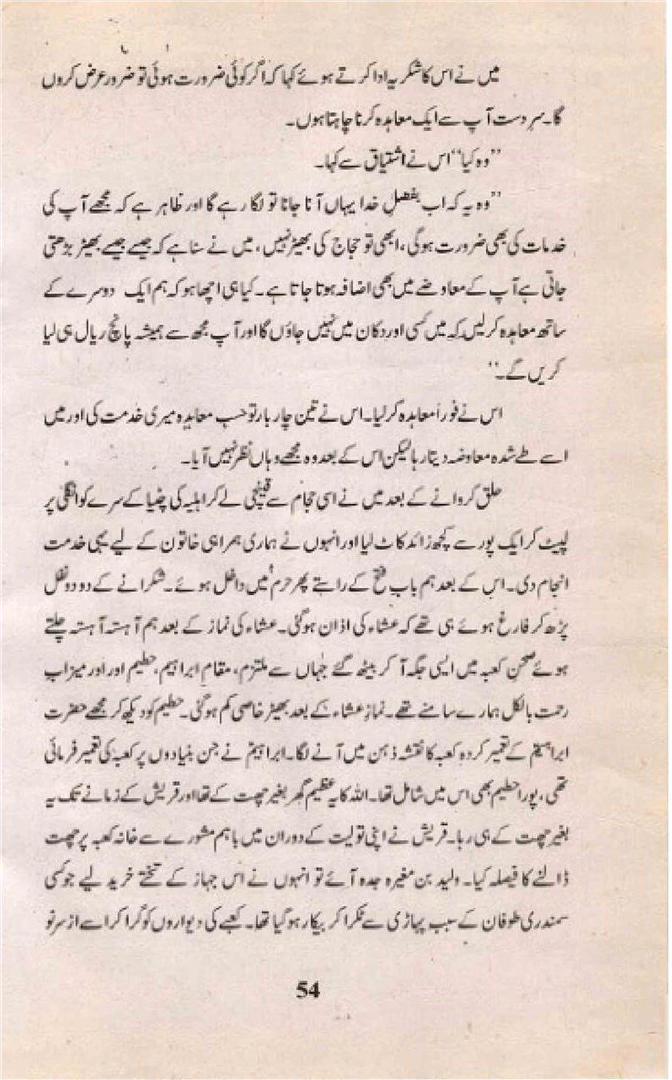 میں نے اس کا شکریہ ادا کرتے ہوئے کہا کہ اگر کوئی ضرورت ہوئی تو ضرور عرض کروں
گا۔ سردست آپ سے ایک معاہدہ کرنا چاہتا ہوں۔
”وہ کیا“ اس نے اشتیاق سے کہا۔
”وہ یہ کہ اب بفضلِ خدا یہاں آنا جانا تو لگا رہے گا اور ظاہر ہے کہ مجھے آپ کی
خدمات کی بھی ضرورت ہوگی، ابھی تو حجاج کی بھیڑ نہیں، میں نے سنا ہے کہ جیسے جیسے بھیڑ بڑھتی
جاتی ہے آپ کے معاوضے میں بھی اضافہ ہوتا جاتا ہے۔ کیا ہی اچھا ہو کہ ہم ایک دوسرے کے
ساتھ معاہدہ کرلیں کہ میں کسی اور دکان میں نہیں جاؤں گا اور آپ مجھ سے ہمیشہ پانچ ریال ہی لیا
کریں گے۔“
اس نے فوراً معاہدہ کرلیا۔ اس نے تین چار بار تو حسب معاہدہ میری خدمت کی اور میں
اسے طے شدہ معاوضہ دیتا رہا لیکن اس کے بعد وہ مجھے وہاں نظر نہیں آیا۔
حلق کروانے کے بعد میں نے اسی حجام سے قینچی لے کر اہلیہ کی چٹیا کے سرے کو انگلی پر
لپیٹ کر ایک پور سے کچھ زائد کاٹ لیا اور انہوں نے ہماری ہمراہی خاتون کے لیے یہی خدمت
انجام دی۔ اس کے بعد ہم باب فتح کے راستے پھر حرم میں داخل ہوئے۔ شکرانے کے دو دو نفل
پڑھ کر فارغ ہوئے ہی تھے کہ عشاء کی اذان ہوگئی۔ عشاء کی نماز کے بعد ہم آہستہ آہستہ چلتے
ہوئے صحن کعبہ میں ایسی جگہ آ کر بیٹھ گئے جہاں سے ملتزم، مقام ابراہیم، حطیم اور اور میزاب
رحمت بالکل ہمارے سامنے تھے۔ نماز عشاء کے بعد بھیڑ خاصی کم ہوگئی۔ حطیم کو دیکھ کر مجھے حضرت
ابراہیمؑ کے تعمیر کردہ کعبہ کا نقشہ ذہن میں آنے لگا۔ ابراہیمؑ نے جن بنیادوں پر کعبہ کی تعمیر فرمائی
تھی، پورا حطیم بھی اس میں شامل تھا۔ اللہ کا یہ عظیم گھر بغیر چھت کے تھا اور قریش کے زمانے تک یہ
بغیر چھت کے ہی رہا۔ قریش نے اپنی تولیت کے دوران میں باہم مشورے سے خانہ کعبہ پر چھت
ڈالنے کا فیصلہ کیا۔ ولید بن مغیرہ جدہ آئے تو انہوں نے اس جہاز کے تختے خرید لیے جو کسی
سمندری طوفان کے سبب پہاڑی سے ٹکرا کر بیکار ہو گیا تھا۔ کعبے کی دیواروں کو گرا کر اسے از سر نو
54